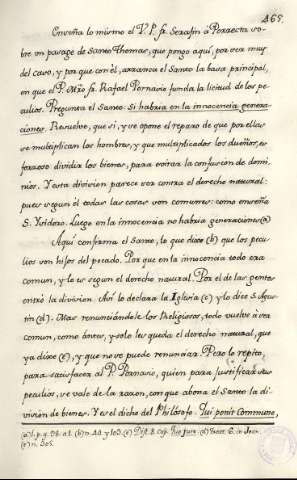 465.
Enseña lo mismo el V. P. fr. Serafin á Porrecta so-
bre un pasage de Santo Thomas, que pongo aquí, por ser muy
del caso, y por que con èl, arranca el Santo la basa principal,
en que el P. Mro fr. Rafael Pornasio funda la licitud de los pe-
culios. Pregunta el Santo: Si habria en la innocencia genera-
ciones. Resuelve, que si, y se opone el reparo de que por ellas
se multiplican los hombres, y que multiplicados los dueños, es
forzoso dividir los bienes, para evitar la confusion de domi-
nios. Y esta division parece ser contra el derecho natural:
pues segun èl todas las cosas son comunes: como enseña
S. Ysidoro. Luego en la innocencia no habria generaciones (a)
Aqui confirma el Santo, lo que dixe (b) que los pecu-
lios son hijos del pecado. Por que en la innocencia todo era
comun, y lo es segun el derecho natural. Por el de las gentes
entró la division. Asi lo declara la Iglesia (c) y lo dice S. Agus-
tin (d). Mas renunciandole los Religiosos, todo vuelve á ser
comun, como antes, y solo les queda el derecho natural, que
ya dixe (e), y que no se puede renunciar. Pero lo repito,
para satisfacer al P. Pornasio, quien para justificar sus
peculios, se vale de la razon, con que abona el Santo la di-
vision de bienes. Y es el dicho del Philósofo. Qui ponit Communia,
(a) 1. p. q. 98. a 1. (b) n. 44. y 163. (c) Dist. 8. cap. Quo jure. (d) Tract. 6. in Joan.
(e) n. 305.